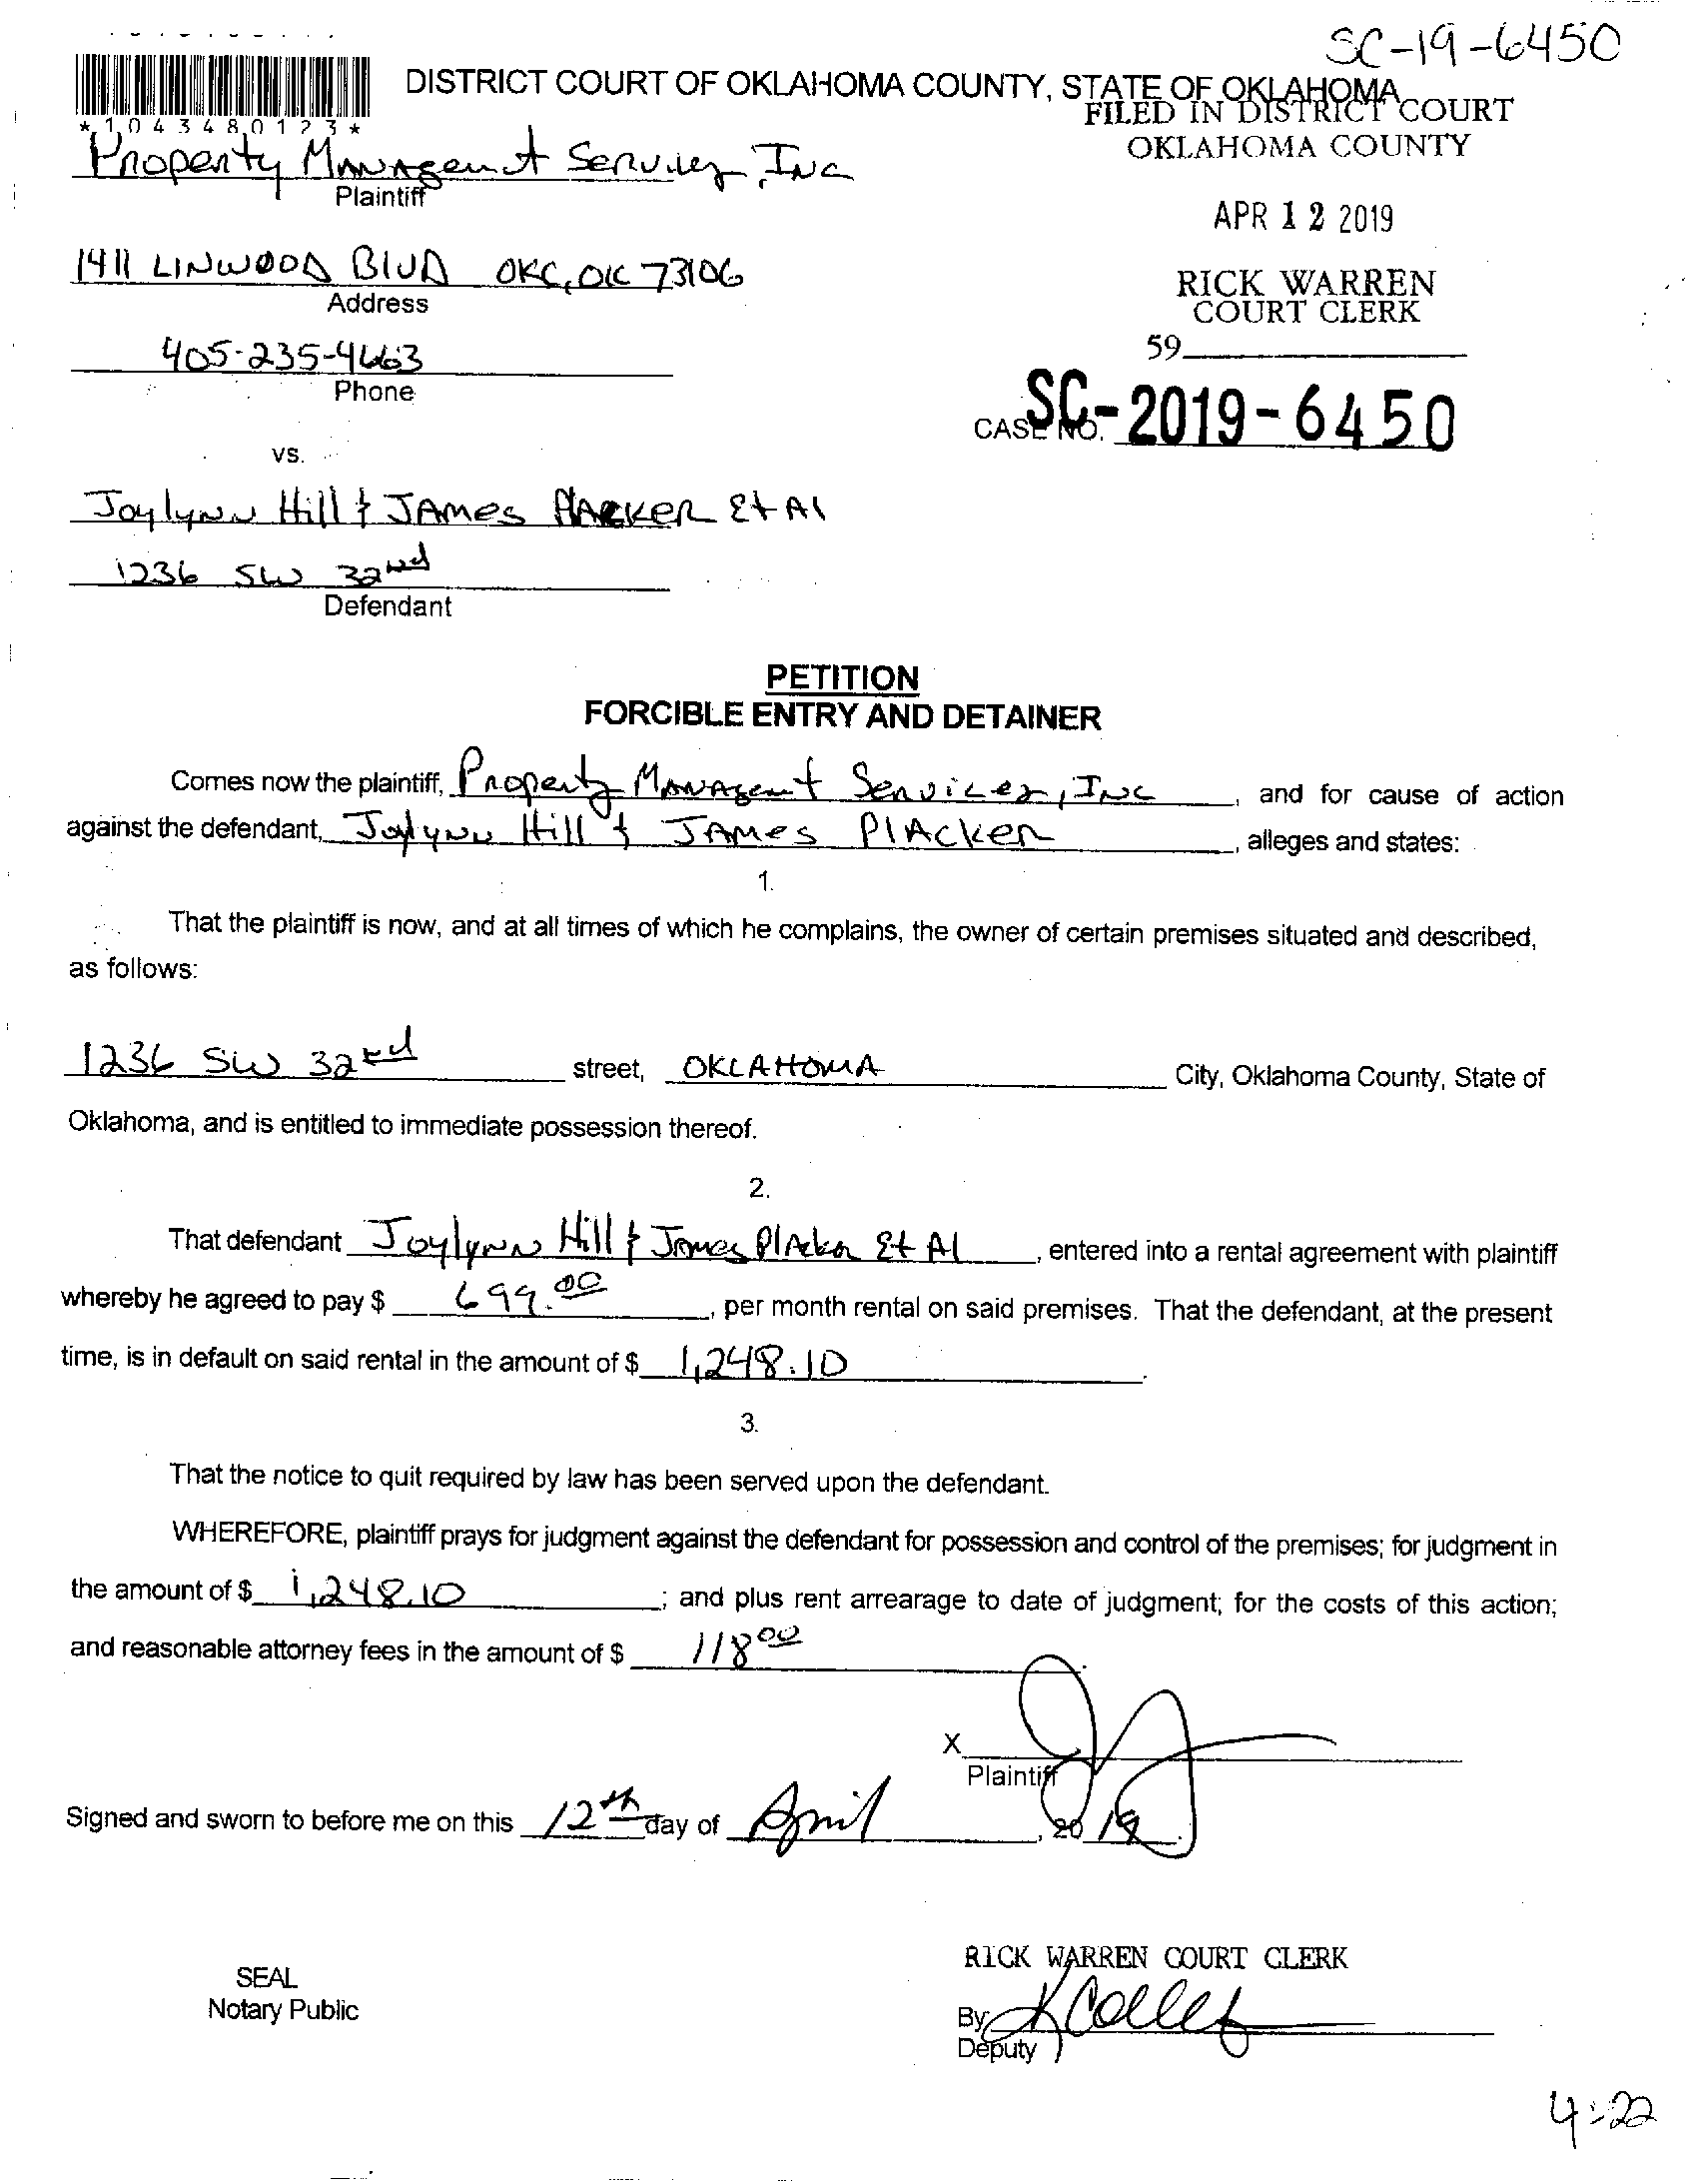 SC-19-6450
DISTRICT COURT OF OKLAHOMA COUNTY, STATE OF OKLAHOMA
*1043480123*
FILED IN DISTRICT COURT
OKLAHOMA COUNTY
Property Managemt Services, Inc
Plaintiff
APR 12 2019
1411 LINWOOD Blvd OKC, OK 73106
Address
RICK WARREN
COURT CLERK
405-235-4663
Phone
59
CASE NO. SC-2019-6450
vs.
Joylynn Hill & JAMES PlACKER Et Al
1236 SW 32nd
Defendant
PETITION
FORCIBLE ENTRY AND DETAINER
Comes now the plaintiff, Property Managemt Services, Inc, and for cause of action
against the defendant, Joylynn Hill & JAMES PlAcker, alleges and states:
1.
That the plaintiff is now, and at all times of which he complains, the owner of certain premises situated and described,
as follows:
1236 SW 32nd street, OKLAHOMA City, Oklahoma County, State of
Oklahoma, and is entitled to immediate possession thereof.
2.
That defendant Joylynn Hill & James Placker Et Al, entered into a rental agreement with plaintiff
whereby he agreed to pay $ 699.00, per month rental on said premises. That the defendant, at the present
time, is in default on said rental in the amount of $ 1,248.10.
3.
That the notice to quit required by law has been served upon the defendant.
WHEREFORE, plaintiff prays for judgment against the defendant for possession and control of the premises; for judgment in
the amount of $ 1,248.10; and plus rent arrearage to date of judgment; for the costs of this action;
and reasonable attorney fees in the amount of $ 118 00.
X
Plaintiff
Signed and sworn to before me on this 12th day of April, 2019.
RICK WARREN COURT CLERK
SEAL
Notary Public
By
Deputy
4-22